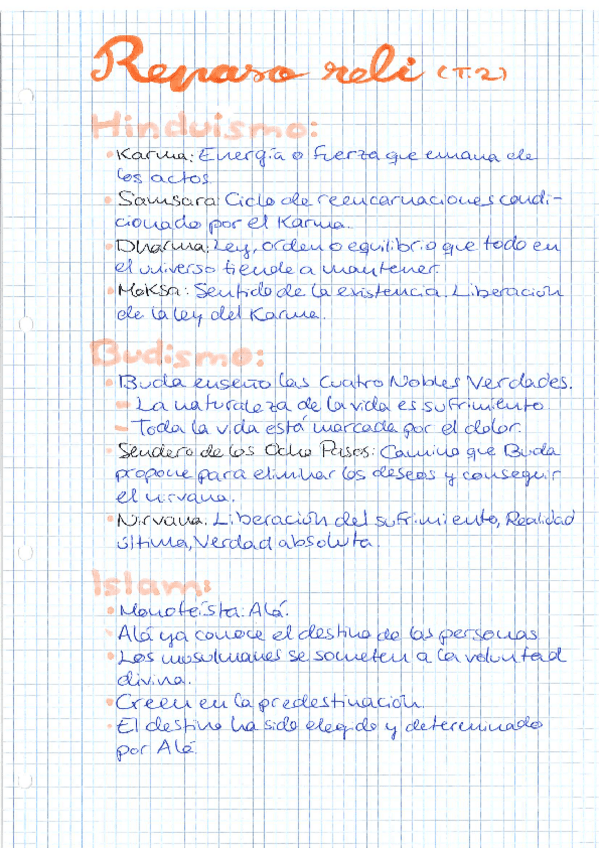 Repaso reli (T.2)
Hinduismo:
• Karma: Energía o fuerza que emana de
los actos.
• Samsara: Ciclo de reencarnaciones condi-
cionado por el Karma.
• Dharma: Ley, orden o equilibrio que todo en
el universo tiende a mantener.
• Moksa: Sentido de la existencia. Liberación
de la ley del Karma.
Budismo:
• Buda enseño las Cuatro Nobles Verdades.
– La naturaleza de la vida es sufrimiento
– Toda la vida está marcada por el dolor.
• Sendero de los Ocho Pasos: Camino que Buda
propone para eliminar los deseos y conseguir
el nirvana.
• Nirvana. Liberación del sufrimiento, Realidad
última, Verdad absoluta.
Islam:
• Monoteísta: Alá.
• Alá ya conoce el destino de las personas
• Los musulmanes se someten a la voluntad
divina.
• Creen en la predestinación.
• El destino ha sido elegido y determinado
por Alá.